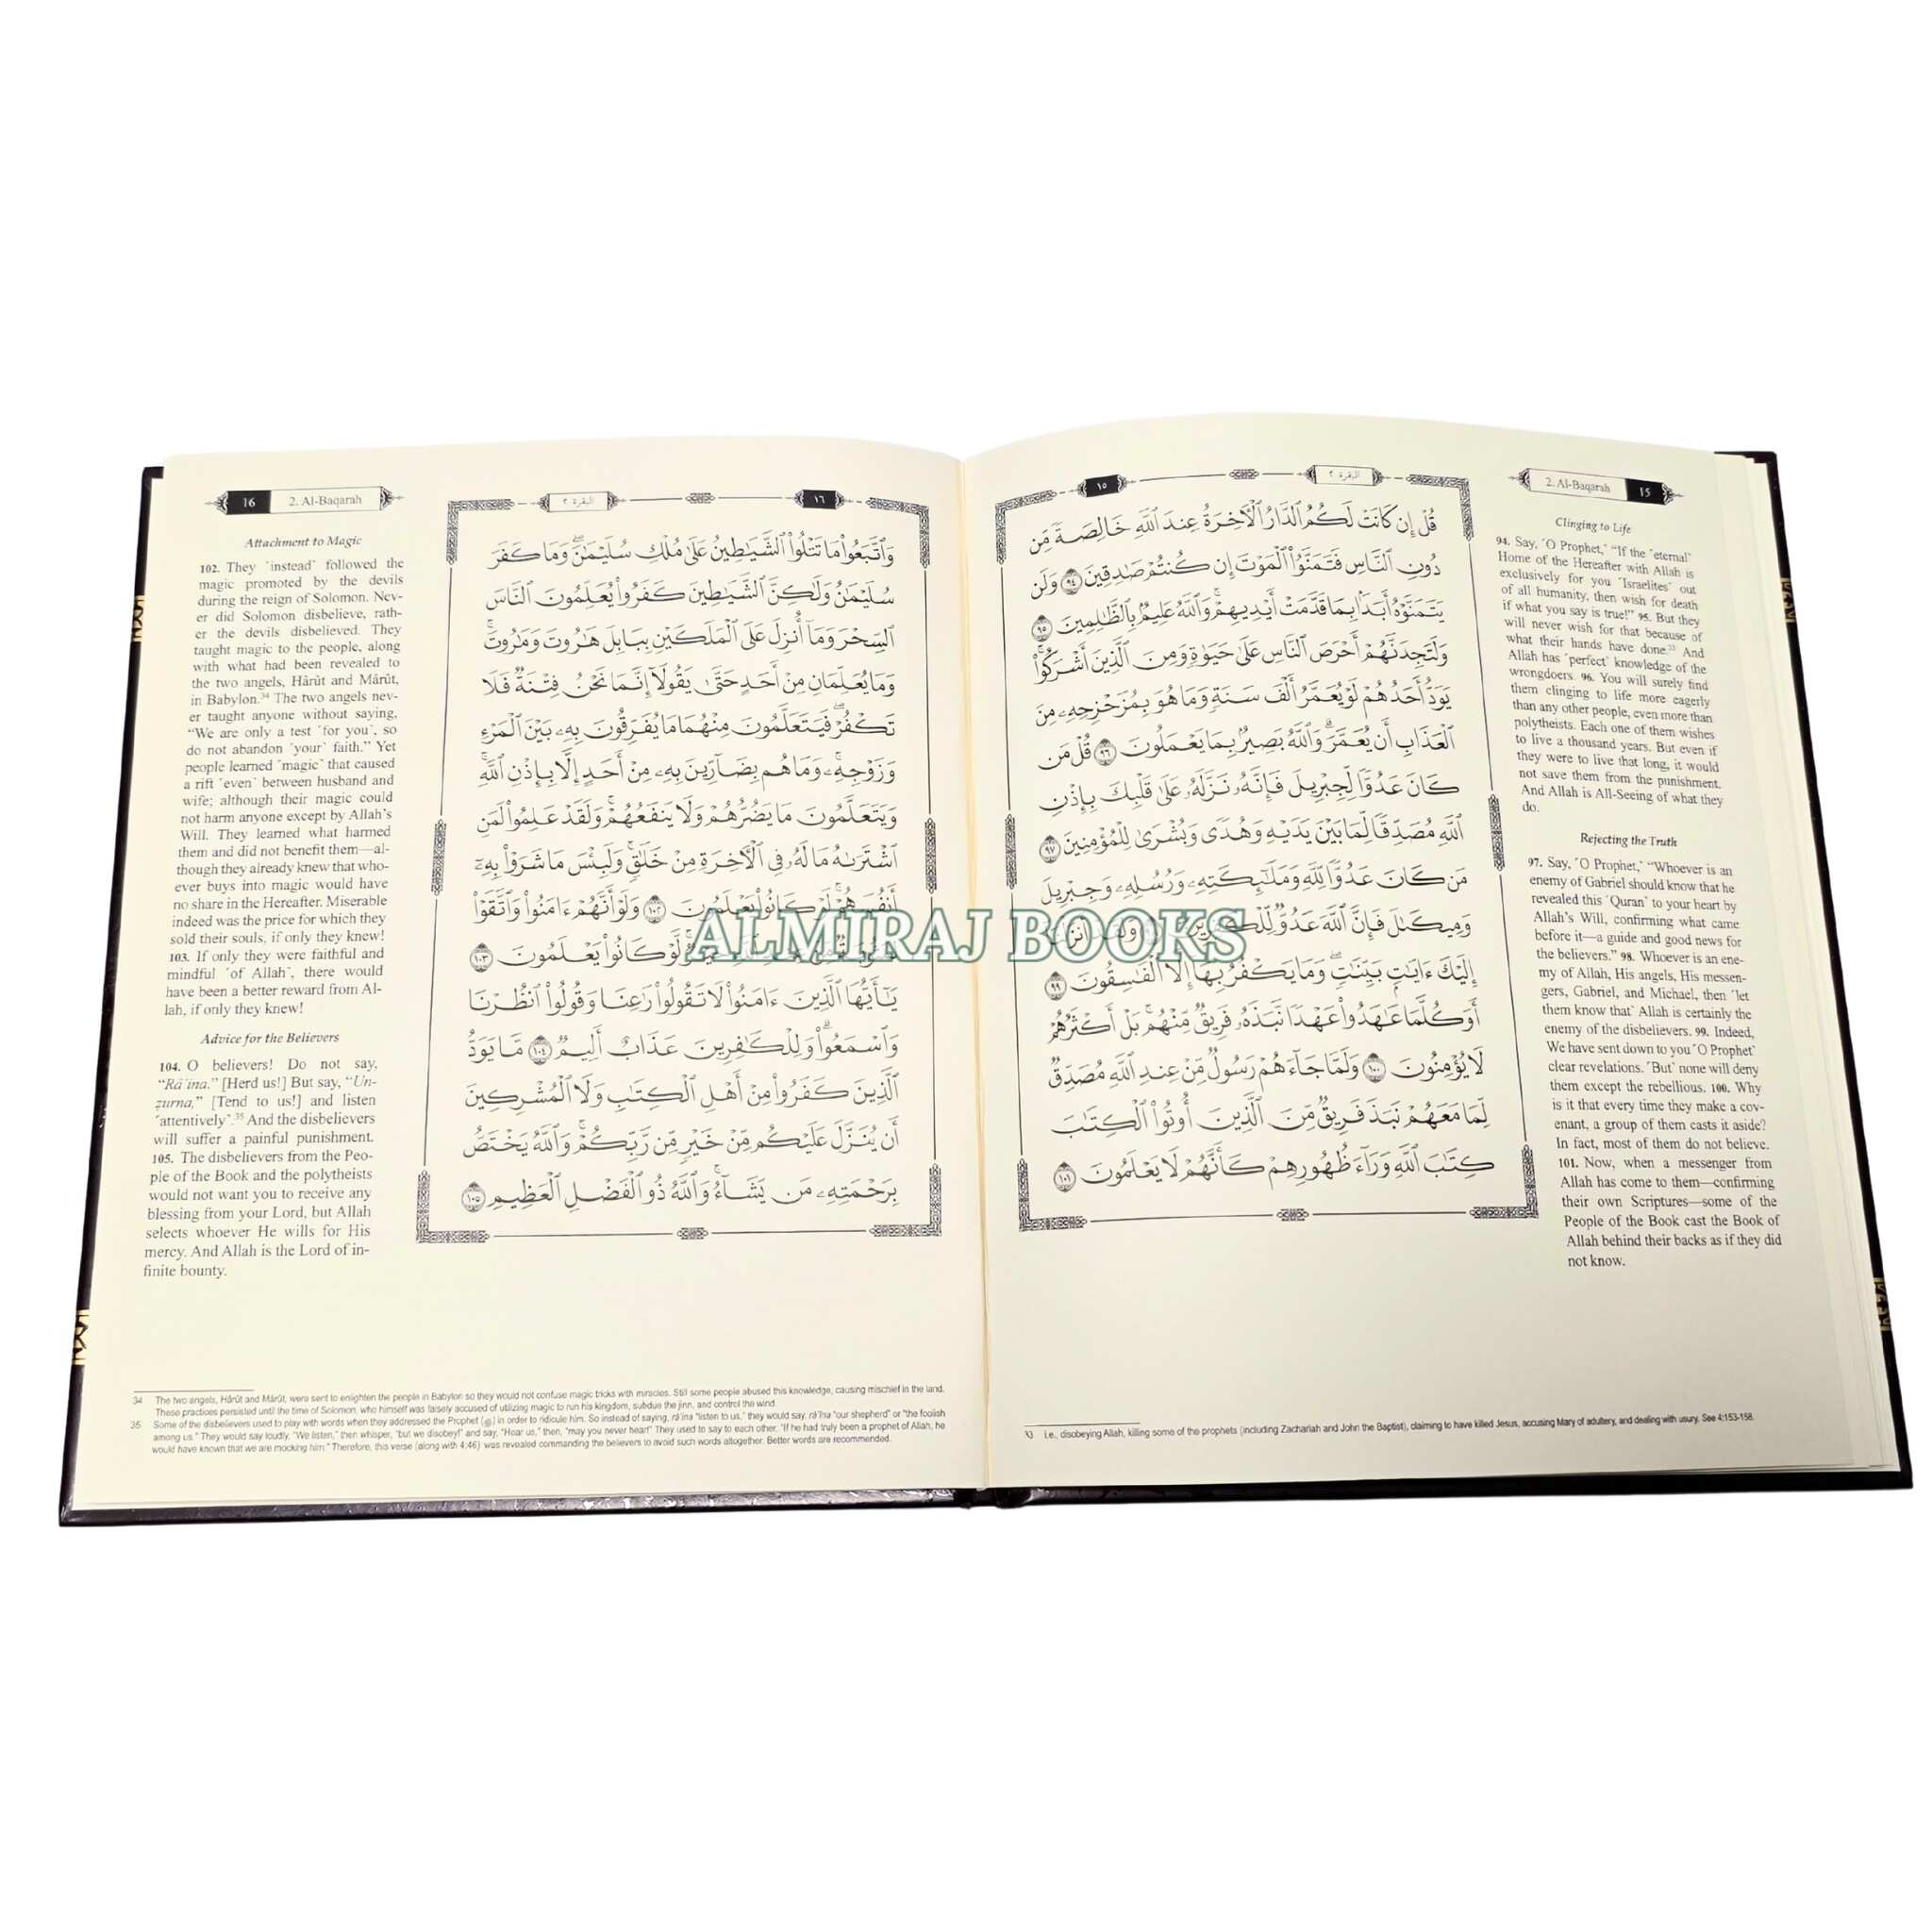 ١٥
البقرة ٢
قُلْ إِن كَانَتْ لَكُمُ ٱلدَّارُ ٱلْأَخِرَةُ عِندَ ٱللَّهِ خَالِصَةً مِّن
دُونِ ٱلنَّاسِ فَتَمَنَّوُا۟ ٱلْمَوْتَ إِن كُنتُمْ صَٰدِقِينَ ٩٤ وَلَن
يَتَمَنَّوْهُ أَبَدًۢا بِمَا قَدَّمَتْ أَيْدِيهِمْ ۗ وَٱللَّهُ عَلِيمٌۢ بِٱلظَّٰلِمِينَ ٩٥
وَلَتَجِدَنَّهُمْ أَحْرَصَ ٱلنَّاسِ عَلَىٰ حَيَوٰةٍ وَمِنَ ٱلَّذِينَ أَشْرَكُوا۟ ۚ
يَوَدُّ أَحَدُهُمْ لَوْ يُعَمَّرُ أَلْفَ سَنَةٍ وَمَا هُوَ بِمُزَحْزِحِهِۦ مِنَ
ٱلْعَذَابِ أَن يُعَمَّرَ ۗ وَٱللَّهُ بَصِيرٌۢ بِمَا يَعْمَلُونَ ٩٦ قُلْ مَن
كَانَ عَدُوًّا لِّجِبْرِيلَ فَإِنَّهُۥ نَزَّلَهُۥ عَلَىٰ قَلْبِكَ بِإِذْنِ
ٱللَّهِ مُصَدِّقًا لِّمَا بَيْنَ يَدَيْهِ وَهُدًى وَبُشْرَىٰ لِلْمُؤْمِنِينَ ٩٧
مَن كَانَ عَدُوًّا لِّلَّهِ وَمَلَٰٓئِكَتِهِۦ وَرُسُلِهِۦ وَجِبْرِيلَ
وَمِيكَىٰلَ فَإِنَّ ٱللَّهَ عَدُوٌّ لِّلْكَٰفِرِينَ
إِلَيْكَ ءَايَٰتٍۭ بَيِّنَٰتٍ ۖ وَمَا يَكْفُرُ بِهَآ إِلَّا ٱلْفَٰسِقُونَ ٩٩
أَوَكُلَّمَا عَٰهَدُوا۟ عَهْدًا نَّبَذَهُۥ فَرِيقٌ مِّنْهُم ۚ بَلْ أَكْثَرُهُمْ
لَا يُؤْمِنُونَ ١٠٠ وَلَمَّا جَآءَهُمْ رَسُولٌ مِّنْ عِندِ ٱللَّهِ مُصَدِّقٌ
لِّمَا مَعَهُمْ نَبَذَ فَرِيقٌ مِّنَ ٱلَّذِينَ أُوتُوا۟ ٱلْكِتَٰبَ
كِتَٰبَ ٱللَّهِ وَرَآءَ ظُهُورِهِمْ كَأَنَّهُمْ لَا يَعْلَمُونَ ١٠١
2. Al-Baqarah 15
Clinging to Life
94. Say, ˹O Prophet,˺ “If the ˹eternal˺
Home of the Hereafter with Allah is
exclusively for you ˹Israelites˺ out
of all humanity, then wish for death
if what you say is true!” 95. But they
will never wish for that because of
what their hands have done.³³ And
Allah has ˹perfect˺ knowledge of the
wrongdoers. 96. You will surely find
them clinging to life more eagerly
than any other people, even more than
polytheists. Each one of them wishes
to live a thousand years. But even if
they were to live that long, it would
not save them from the punishment.
And Allah is All-Seeing of what they
do.
Rejecting the Truth
97. Say, ˹O Prophet,˺ “Whoever is an
enemy of Gabriel should know that he
revealed this ˹Quran˺ to your heart by
Allah’s Will, confirming what came
before it—a guide and good news for
the believers.” 98. Whoever is an ene-
my of Allah, His angels, His messen-
gers, Gabriel, and Michael, then ˹let
them know that˺ Allah is certainly the
enemy of the disbelievers. 99. Indeed,
We have sent down to you ˹O Prophet˺
clear revelations. ˹But˺ none will deny
them except the rebellious. 100. Why
is it that every time they make a cov-
enant, a group of them casts it aside?
In fact, most of them do not believe.
101. Now, when a messenger from
Allah has come to them—confirming
their own Scriptures—some of the
People of the Book cast the Book of
Allah behind their backs as if they did
not know.
i.e., disobeying Allah, killing some of the prophets (including Zachariah and John the Baptist), claiming to have killed Jesus, accusing Mary of adultery, and dealing with usury. See 4:153-158.
16 2. Al-Baqarah
Attachment to Magic
102. They ˹instead˺ followed the
magic promoted by the devils
during the reign of Solomon. Nev-
er did Solomon disbelieve, rath-
er the devils disbelieved. They
taught magic to the people, along
with what had been revealed to
the two angels, Hârût and Mârût,
in Babylon.³⁴ The two angels nev-
er taught anyone without saying,
“We are only a test ˹for you˺, so
do not abandon ˹your˺ faith.” Yet
people learned ˹magic˺ that caused
a rift ˹even˺ between husband and
wife; although their magic could
not harm anyone except by Allah’s
Will. They learned what harmed
them and did not benefit them—al-
though they already knew that who-
ever buys into magic would have
no share in the Hereafter. Miserable
indeed was the price for which they
sold their souls, if only they knew!
103. If only they were faithful and
mindful ˹of Allah˺, there would
have been a better reward from Al-
lah, if only they knew!
Advice for the Believers
104. O believers! Do not say,
“Râ’ina.” [Herd us!] But say, “Un-
ẓurna,” [Tend to us!] and listen
˹attentively˺.³⁵ And the disbelievers
will suffer a painful punishment.
105. The disbelievers from the Peo-
ple of the Book and the polytheists
would not want you to receive any
blessing from your Lord, but Allah
selects whoever He wills for His
mercy. And Allah is the Lord of in-
finite bounty.
البقرة ٢
١٦
وَٱتَّبَعُوا۟ مَا تَتْلُوا۟ ٱلشَّيَٰطِينُ عَلَىٰ مُلْكِ سُلَيْمَٰنَ ۖ وَمَا كَفَرَ
سُلَيْمَٰنُ وَلَٰكِنَّ ٱلشَّيَٰطِينَ كَفَرُوا۟ يُعَلِّمُونَ ٱلنَّاسَ
ٱلسِّحْرَ وَمَآ أُنزِلَ عَلَى ٱلْمَلَكَيْنِ بِبَابِلَ هَٰرُوتَ وَمَٰرُوتَ ۚ
وَمَا يُعَلِّمَانِ مِنْ أَحَدٍ حَتَّىٰ يَقُولَآ إِنَّمَا نَحْنُ فِتْنَةٌ فَلَا
تَكْفُرْ ۖ فَيَتَعَلَّمُونَ مِنْهُمَا مَا يُفَرِّقُونَ بِهِۦ بَيْنَ ٱلْمَرْءِ
وَزَوْجِهِۦ ۚ وَمَا هُم بِضَآرِّينَ بِهِۦ مِنْ أَحَدٍ إِلَّا بِإِذْنِ ٱللَّهِ ۚ
وَيَتَعَلَّمُونَ مَا يَضُرُّهُمْ وَلَا يَنفَعُهُمْ ۚ وَلَقَدْ عَلِمُوا۟ لَمَنِ
ٱشْتَرَىٰهُ مَا لَهُۥ فِى ٱلْأَخِرَةِ مِنْ خَلَٰقٍ ۚ وَلَبِئْسَ مَا شَرَوْا۟ بِهِۦٓ
أَنفُسَهُمْ ۚ لَوْ كَانُوا۟ يَعْلَمُونَ ١٠٢ وَلَوْ أَنَّهُمْ ءَامَنُوا۟ وَٱتَّقَوْا۟
لَّوْ كَانُوا۟ يَعْلَمُونَ ١٠٣
يَٰٓأَيُّهَا ٱلَّذِينَ ءَامَنُوا۟ لَا تَقُولُوا۟ رَٰعِنَا وَقُولُوا۟ ٱنظُرْنَا
وَٱسْمَعُوا۟ ۗ وَلِلْكَٰفِرِينَ عَذَابٌ أَلِيمٌ ١٠٤ مَّا يَوَدُّ
ٱلَّذِينَ كَفَرُوا۟ مِنْ أَهْلِ ٱلْكِتَٰبِ وَلَا ٱلْمُشْرِكِينَ
أَن يُنَزَّلَ عَلَيْكُم مِّنْ خَيْرٍ مِّن رَّبِّكُمْ ۗ وَٱللَّهُ يَخْتَصُّ
بِرَحْمَتِهِۦ مَن يَشَآءُ ۚ وَٱللَّهُ ذُو ٱلْفَضْلِ ٱلْعَظِيمِ ١٠٥
34 The two angels, Hârût and Mârût, were sent to enlighten the people in Babylon so they would not confuse magic tricks with miracles. Still some people abused this knowledge, causing mischief in the land.
These practices persisted until the time of Solomon, who himself was falsely accused of utilizing magic to run his kingdom, subdue the jinn, and control the wind.
35 Some of the disbelievers used to play with words when they addressed the Prophet (ﷺ) in order to ridicule him. So instead of saying, râ’ina “listen to us,” they would say, râ’îna “our shepherd” or “the foolish
among us.” They would say loudly, “We listen,” then whisper, “but we disobey!” and say, “Hear us,” then, “may you never hear!” They used to say to each other, “If he had truly been a prophet of Allah, he
would have known that we are mocking him.” Therefore, this verse (along with 4:46) was revealed commanding the believers to avoid such words altogether. Better words are recommended.
ALMIRAJ BOOKS